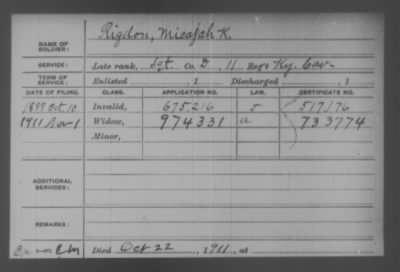 NAME OF SOLDIER: Rigdon, Micajah K.
SERVICE: Late rank, Sgt. Co. D, 11 Reg't Ky. Cav.
TERM OF SERVICE: Enlisted , 1 Discharged , 1
DATE OF FILING. CLASS. APPLICATION NO. LAW. CERTIFICATE NO.
Oct 10 Invalid, 675,216 517176
1911 Nov 1 Widow, 974331 a 733774
Minor,
ADDITIONAL SERVICES:
REMARKS:
Died Oct 22, 1911, at